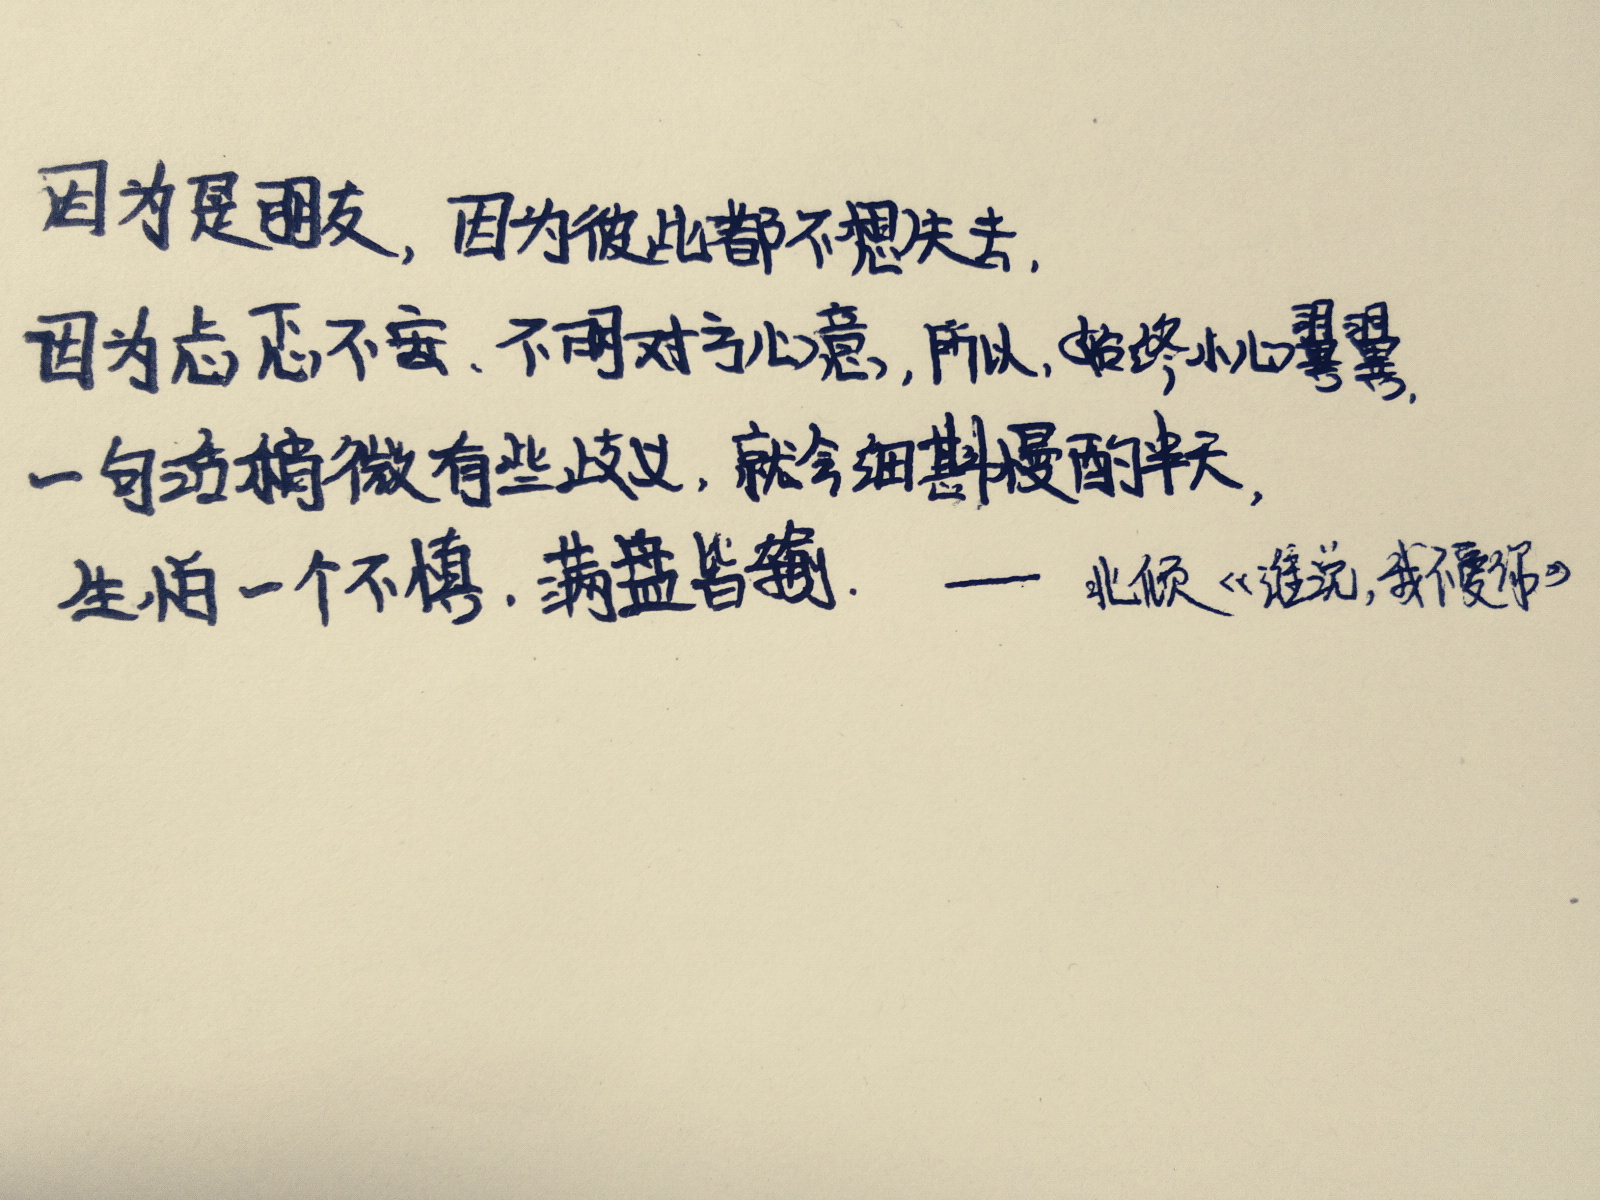 因为是朋友，因为彼此都不想失去，
因为忐忑不安、不明对方心意，所以，始终小心翼翼，
一句话稍微有些歧义，就会细斟慢酌半天，
生怕一个不慎，满盘皆输。 —— 北倾《谁说，我不爱你》